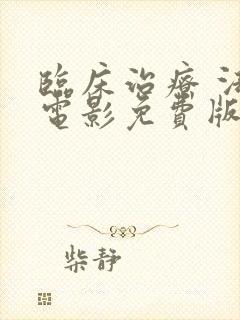 臨床治療 法
電影免費版
柴静